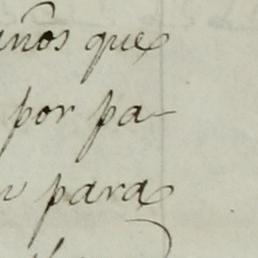 años que
por pa-
para